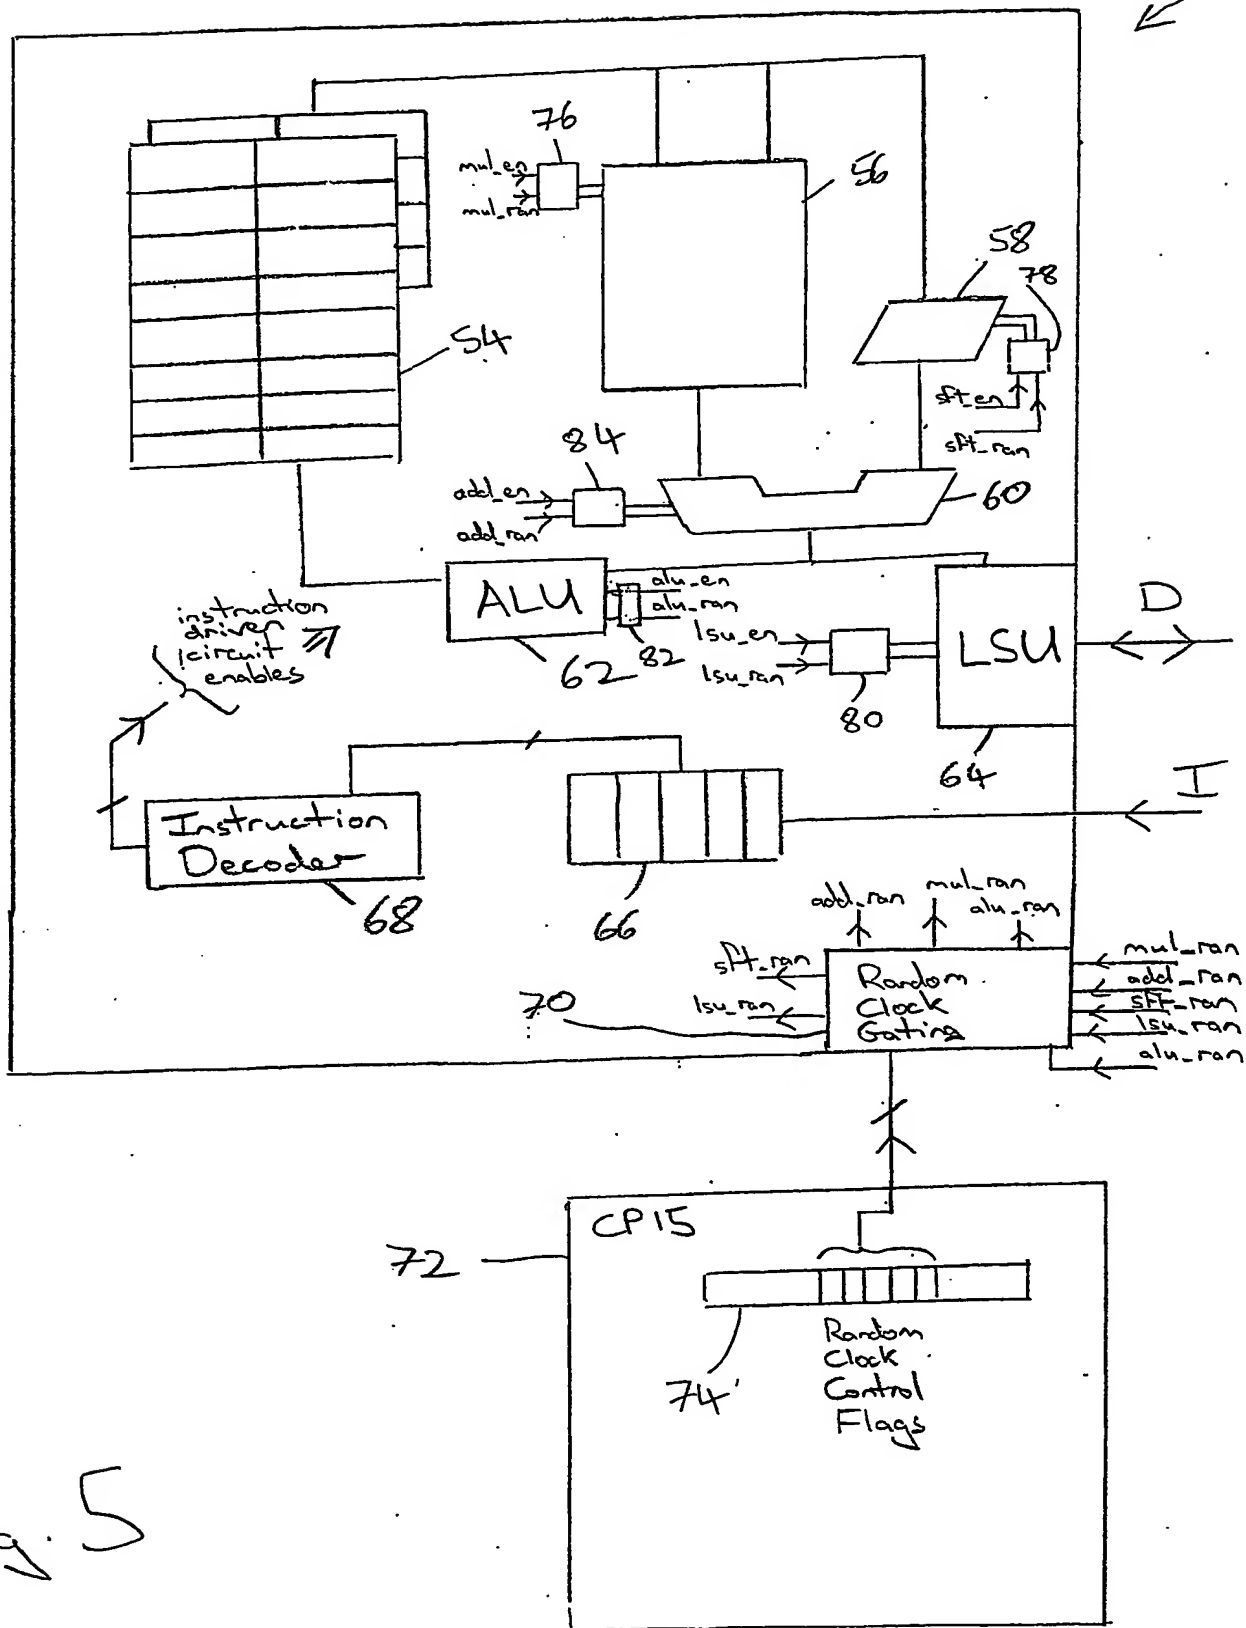 76
mul_en
mul_ran
56
58
78
54
sft_en
sft_ran
84
add_en
add_ran
60
ALU
alu_en
alu_ran
lsu_en
lsu_ran
LSU
D
instruction
driven
circuit
enables
62
82
80
64
I
Instruction
Decoder
68
66
add_ran
mul_ran
alu_ran
sft_ran
lsu_ran
70
Random
Clock
Gating
mul_ran
add_ran
sft_ran
lsu_ran
alu_ran
CP15
72
74
Random
Clock
Control
Flags
g. 5